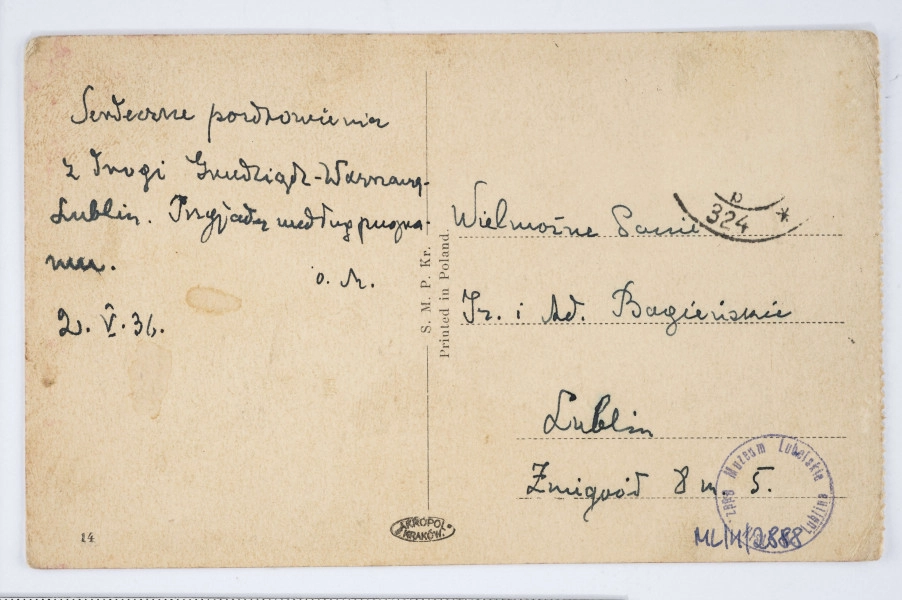 Serdeczne pozdrowienia
z drogi Grudziądz-Warszawa-
Lublin. Przyjadę według progra-
mu.
o. M.
2. V. 36.
S. M. P. Kr.
Printed in Poland.
p
324 *
Wielmożne Panie
Ir. i Ad. Bagieńskie
Lublin
Żmigród 8 m. 5.
Muzeum Lubelskie
ML/H/2888
AKROPOL
KRAKÓW
14